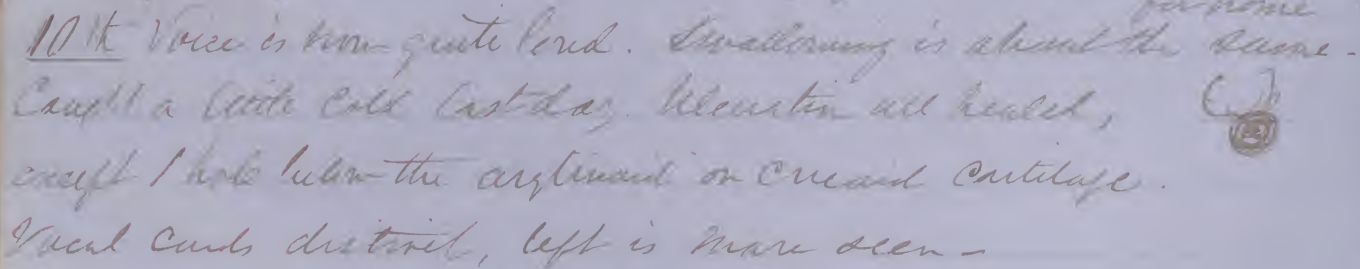 10th Voice is now quite loud. Swallowing is about the same -
Caught a little cold last day. Ulceration all healed,
except 1 hole below the arytenoid on Cricoid Cartilage.
Vocal Cords distinct, left is more seen -